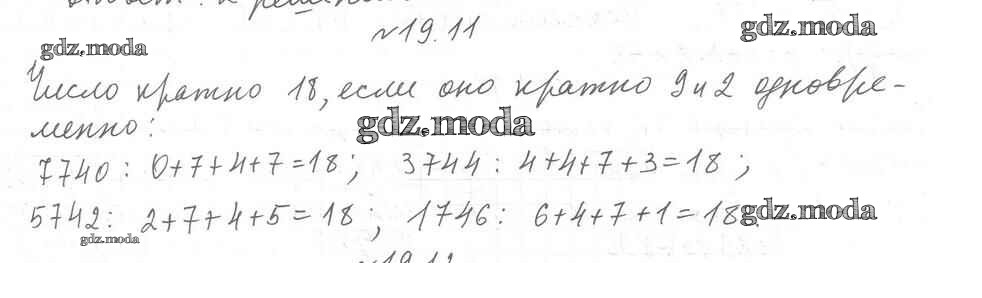 №19.11
gdz.moda
gdz.moda
Число кратно 18, если оно кратно 9 и 2 одновре-
менно:
gdz.moda
7740: 0+7+4+7=18; 3744: 4+4+7+3=18;
5742: 2+7+4+5=18; 1746: 6+4+7+1=18.
gdz.moda
gdz.moda